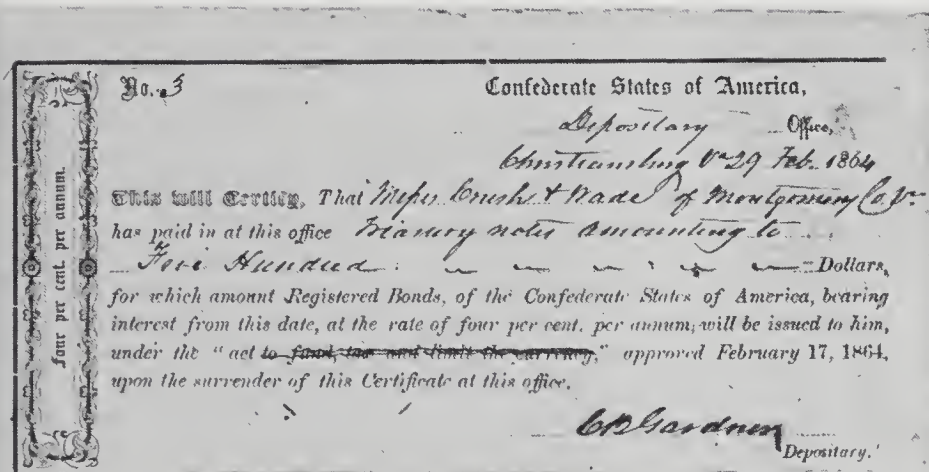 No. 3
Confederate States of America,
Depositary Office,
Christiansburg Va 29 Feb. 1864
This Will Certify, That Messrs Crush & Wade of Montgomery Co. Va
has paid in at this office Treasury notes amounting to
Five Hundred Dollars,
for which amount Registered Bonds, of the Confederate States of America, bearing
interest from this date, at the rate of four per cent. per annum, will be issued to him,
under the "act to fund, tax and limit the currency," approved February 17, 1864,
upon the surrender of this Certificate at this office.
Gardner
Depositary.
Four per cent. per annum.